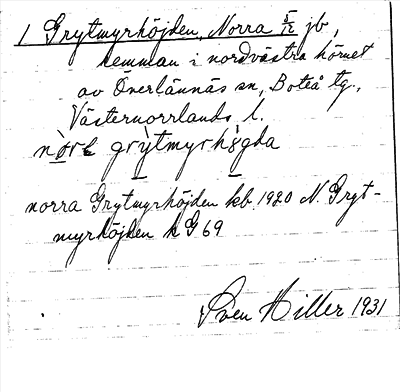 1 Grytmyrhöjden, Norra 5/12 jb,
hemman i nordvästra hörnet
av Överlännäs sn, Boteå tg.,
Västernorrlands l.
grỳtmyrhö̀gda
norra Grytmyrhöjden kb 1920 N. Gryt-
myrhöjden k G 69
Sven Hiller 1931